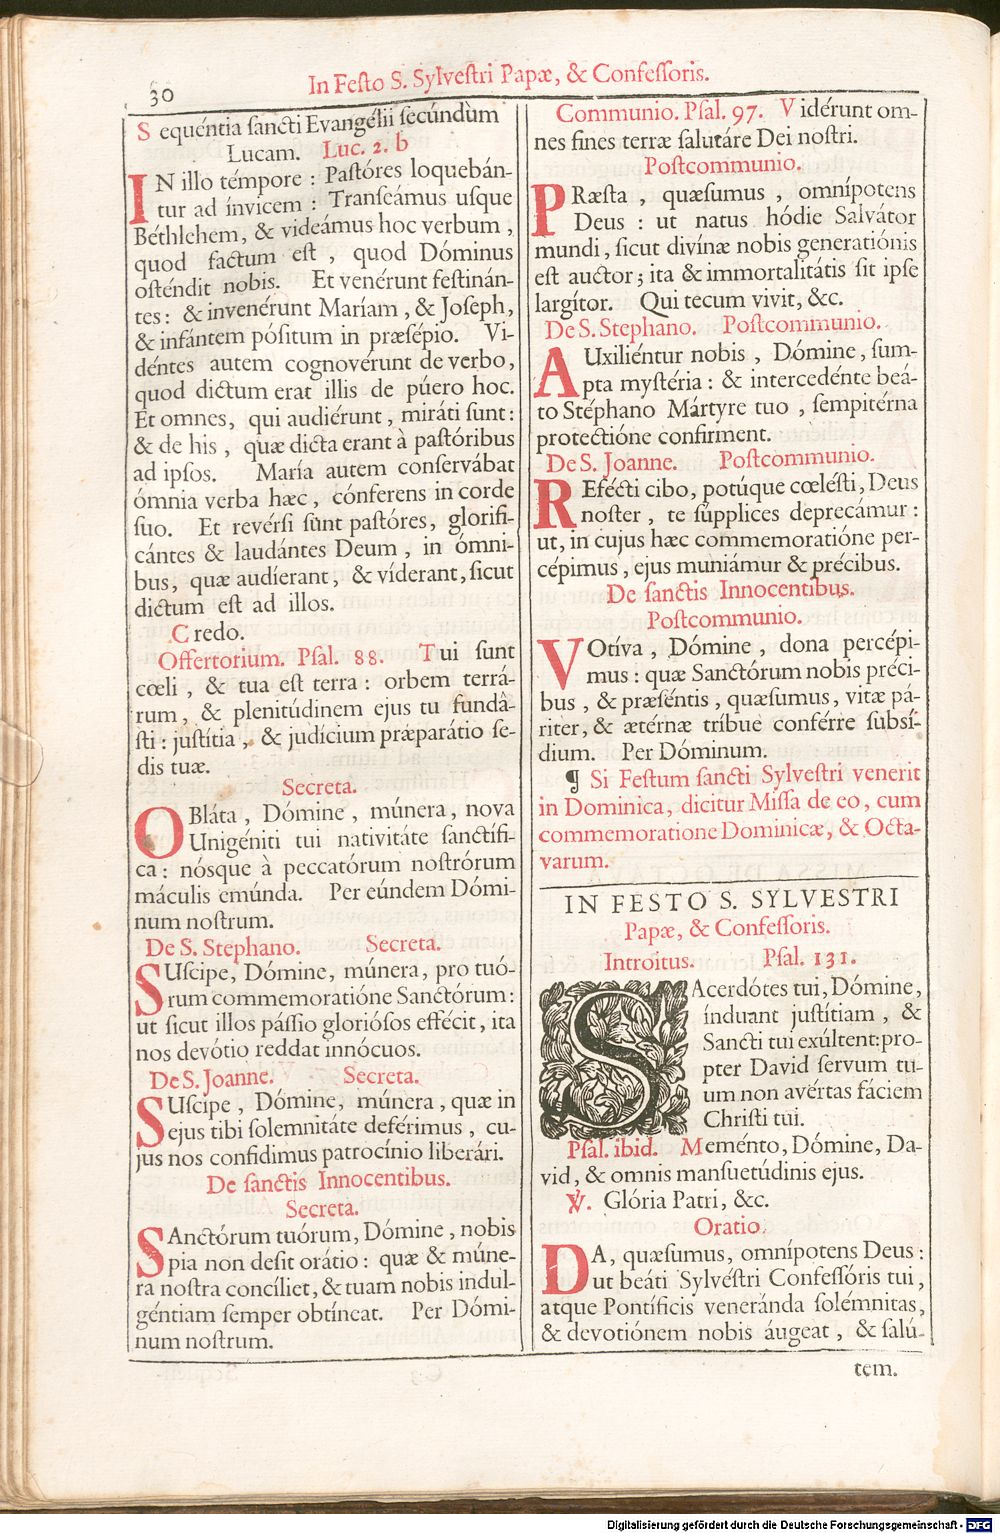 30
In Festo S. Sylvestri Papæ, & Confessoris.
Sequéntia sancti Evangélii secúndùm
Lucam. Luc. 2. b
IN illo témpore : Pastóres loquebán-
tur ad ínvicem : Transeámus usque
Béthlehem, & videámus hoc verbum ,
quod factum est , quod Dóminus
osténdit nobis. Et venérunt festinán-
tes : & invenérunt Maríam , & Joseph,
& infántem pósitum in præsépio. Vi-
déntes autem cognovérunt de verbo,
quod dictum erat illis de púero hoc.
Et omnes, qui audiérunt , miráti sunt :
& de his , quæ dicta erant à pastóribus
ad ipsos. María autem conservábat
ómnia verba hæc , cónferens in corde
suo. Et revérsi sunt pastóres, glorifi-
cántes & laudántes Deum , in ómni-
bus, quæ audíerant, & víderant, sicut
dictum est ad illos.
Credo.
Offertorium. Psal. 88. Tui sunt
cœli , & tua est terra : orbem terrá-
rum, & plenitúdinem ejus tu fundâ-
sti : justítia , & judícium præparátio se-
dis tuæ.
Secreta.
OBláta , Dómine , múnera , nova
Unigéniti tui nativitáte sanctífi-
ca : nósque à peccatórum nostrórum
máculis emúnda. Per eúndem Dómi-
num nostrum.
De S. Stephano. Secreta.
SUscipe, Dómine, múnera, pro tuó-
rum commemoratióne Sanctórum :
ut sicut illos pássio gloriósos effécit, ita
nos devótio reddat innócuos.
De S. Joanne. Secreta.
SUscipe , Dómine, múnera , quæ in
ejus tibi solemnitáte deférimus , cu-
jus nos confídimus patrocínio liberári.
De sanctis Innocentibus.
Secreta.
SAnctórum tuórum, Dómine , nobis
pia non desit orátio : quæ & múne-
ra nostra concíliet, & tuam nobis indul-
géntiam semper obtíneat. Per Dómi-
num nostrum.
Communio. Psal. 97. Vidérunt om-
nes fines terræ salutáre Dei nostri.
Postcommunio.
PRæsta , quæsumus , omnípotens
Deus : ut natus hódie Salvátor
mundi, sicut divínæ nobis generatiónis
est auctor ; ita & immortalitátis sit ipse
largítor. Qui tecum vivit, &c.
De S. Stephano. Postcommunio.
AUxiliéntur nobis , Dómine, sum-
pta mystéria : & intercedénte beá-
to Stéphano Mártyre tuo , sempitérna
protectióne confírment.
De S. Joanne. Postcommunio.
REfécti cibo, potúque cœlésti, Deus
noster , te súpplices deprecámur :
ut, in cujus hæc commemoratióne per-
cépimus , ejus muniámur & précibus.
De sanctis Innocentibus.
Postcommunio.
VOtíva , Dómine , dona percépi-
mus : quæ Sanctórum nobis préci-
bus , & præséntis , quæsumus , vitæ pá-
riter, & ætérnæ tríbue conférre subsí-
dium. Per Dóminum.
¶ Si Festum sancti Sylvestri venerit
in Dominica, dicitur Missa de eo, cum
commemoratione Dominicæ, & Octa-
varum.
IN FESTO S. SYLVESTRI
Papæ, & Confessoris.
Introitus. Psal. 131.
SAcerdótes tui, Dómine,
índuant justítiam , &
Sancti tui exúltent: pro-
pter David servum tu-
um non avértas fáciem
Christi tui.
Psal. ibid. Meménto, Dómine, Da-
vid, & omnis mansuetúdinis ejus.
℣. Glória Patri, &c.
Oratio.
DA, quæsumus, omnípotens Deus :
ut beáti Sylvéstri Confessóris tui ,
atque Pontíficis veneránda solémnitas,
& devotiónem nobis áugeat , & salú-
tem.
Digitalisierung gefördert durch die Deutsche Forschungsgemeinschaft - DFG